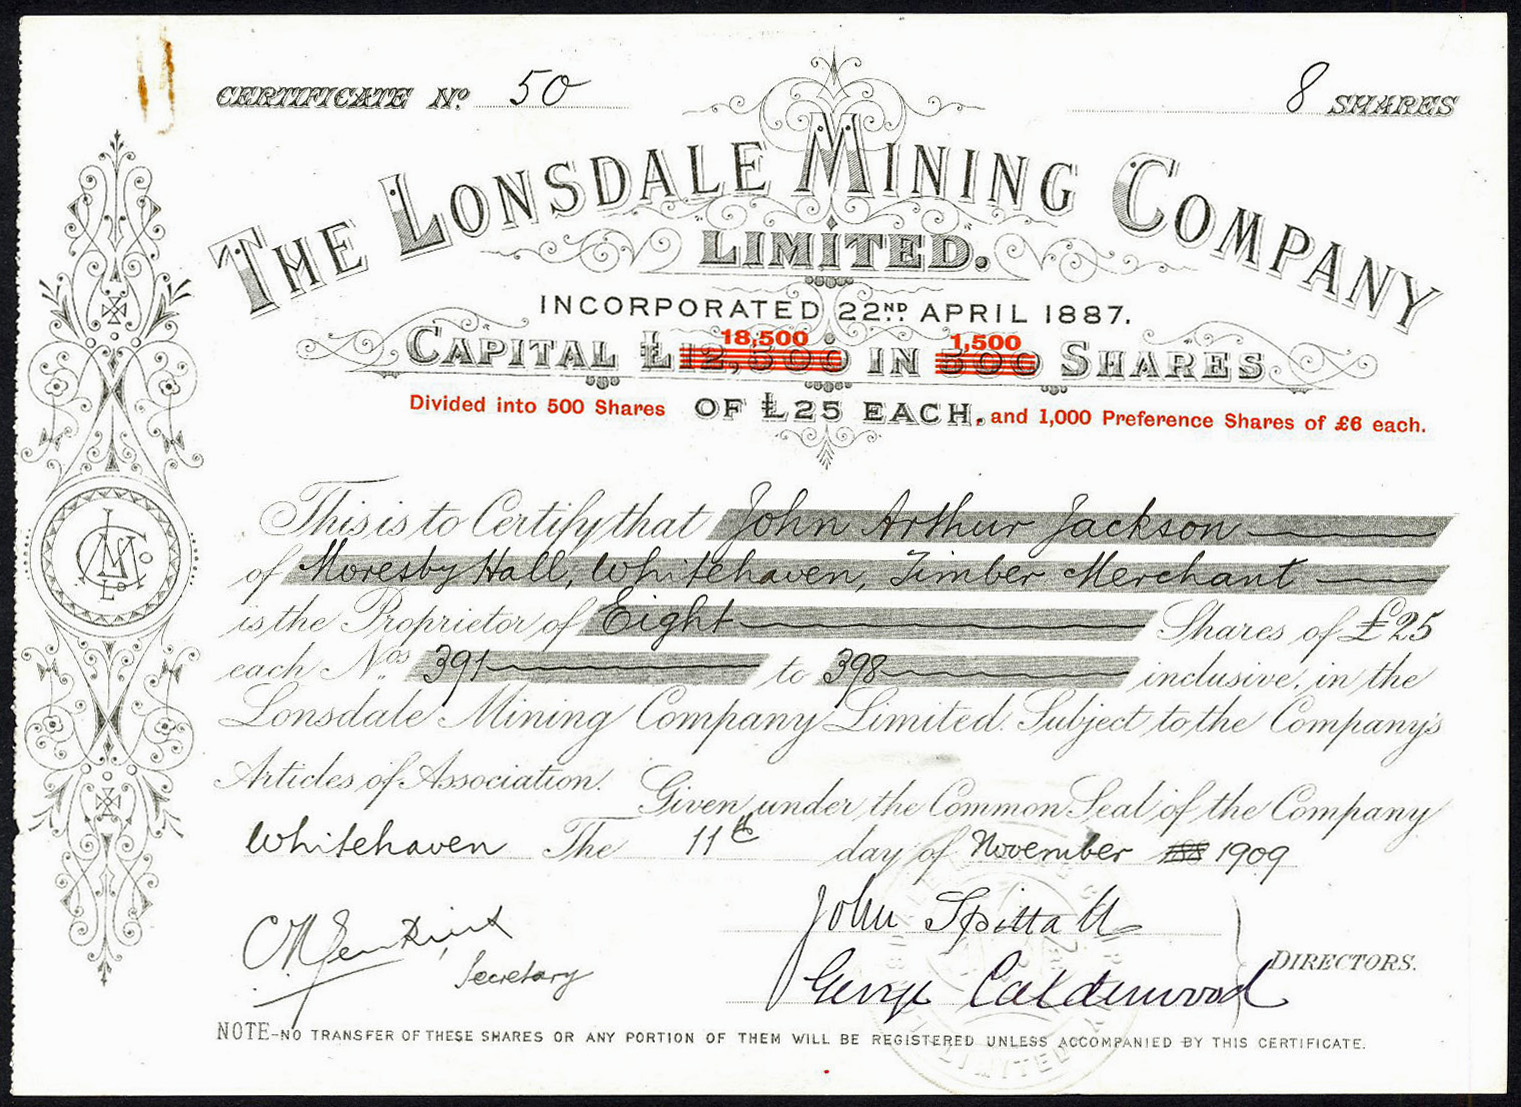 CERTIFICATE No. 50
8 SHARES
THE LONSDALE MINING COMPANY
LIMITED.
INCORPORATED 22ND APRIL 1887.
18,500 1,500
CAPITAL £12,500 IN 500 SHARES
Divided into 500 Shares OF £25 EACH, and 1,000 Preference Shares of £6 each.
This is to Certify that John Arthur Jackson
of Moresby Hall, Whitehaven, Timber Merchant
is the Proprietor of Eight Shares of £25
each Nos 391 to 398 inclusive, in the
Lonsdale Mining Company Limited. Subject to the Company's
Articles of Association. Given under the Common Seal of the Company
Whitehaven The 11th day of November 1909
John Spittall
Secretary
George Calderwood
DIRECTORS.
NOTE-NO TRANSFER OF THESE SHARES OR ANY PORTION OF THEM WILL BE REGISTERED UNLESS ACCOMPANIED BY THIS CERTIFICATE.